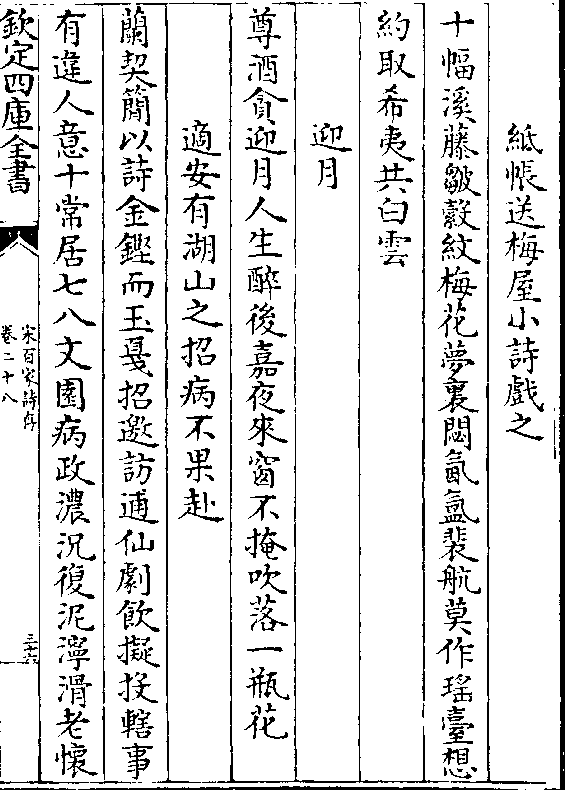 紙帳送梅屋小詩戲之
十幅溪藤皺縠紋梅花夢裏閟氤氲裴航莫作瑤臺想
約取希夷共白雲
迎月
尊酒貪迎月人生醉後嘉夜來窗不掩吹落一瓶花
適安有湖山之招病不果赴
蘭契簡以詩金鏗而玉戛招邀訪逋仙劇飲擬投轄事
有違人意十常居七八文園病政濃況復泥濘滑老懷
欽定四庫全書
宋百家詩存
卷二十八
三十六